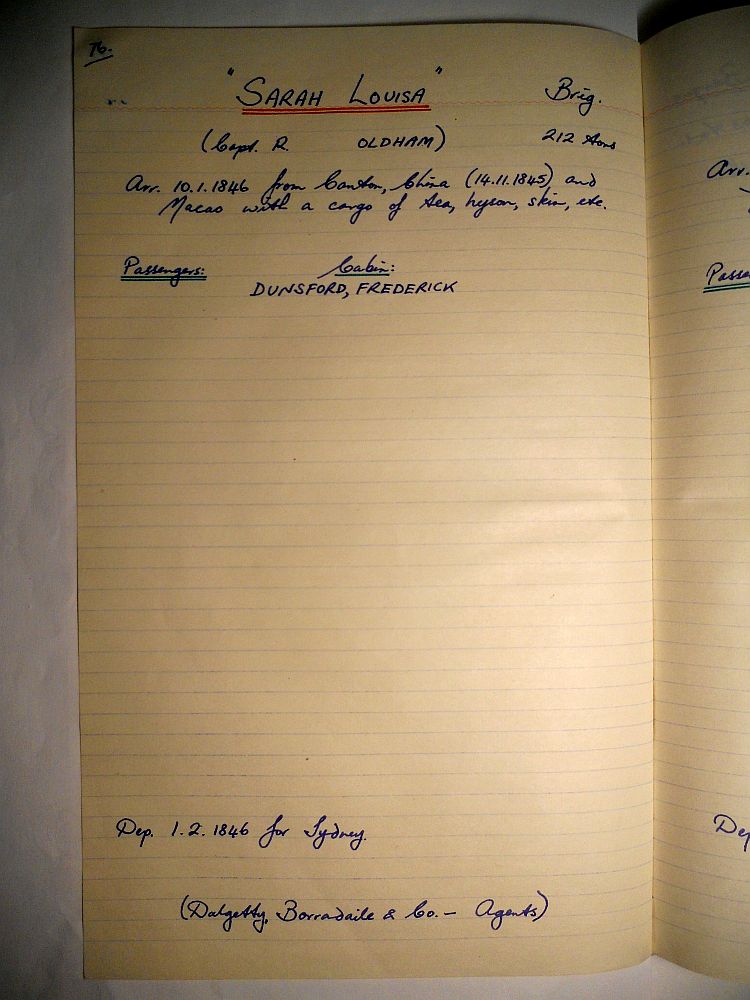 76.
"SARAH LOUISA" Brig.
(Capt. R. OLDHAM) 212 tons
Arr. 10.1.1846 from Canton, China (14.11.1845) and
Macao with a cargo of tea, hyson, skin, etc.
Passengers: Cabin:
DUNSFORD, FREDERICK
Dep. 1.2.1846 for Sydney.
(Dalgetty, Borradaile & Co. – Agents)
Arr.
Passe
Dep